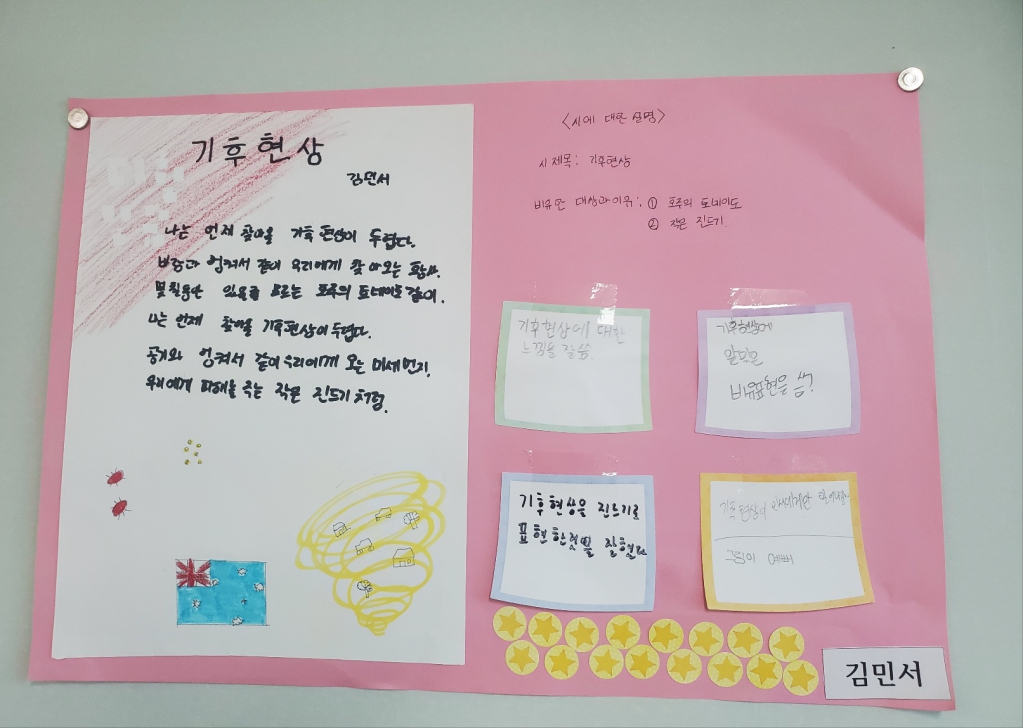 기후현상
김민서
나는 언제 찾아올 기후 현상이 두렵다.
바람과 엉켜서 같이 우리에게 찾아오는 황사.
몇 칠동안 있을줄 모르는 호주의 토네이도 같이.
나는 언제 찾아올 기후현상이 두렵다.
공기와 엉켜서 같이 우리에게 오는 미세먼지.
우리에게 피해를 주는 작은 진드기처럼.
<시에 대한 설명>
시 제목: 기후현상
비유한 대상과 이유: ① 호주의 토네이도
② 작은 진드기.
기후현상에 대한
느낌을 잘씀.
기후현상에
알맞은
비유표현을 씀?
기후현상을 진드기로
표현한것을 잘했다
기후현상이
그림이 예뻐
김민서